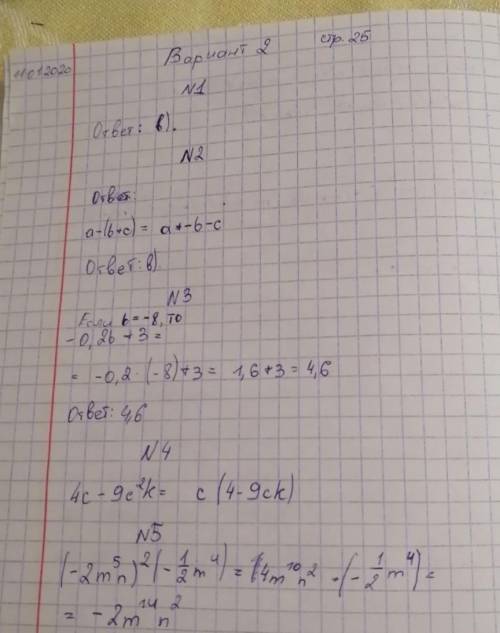 11.01.2020 Вариант 2 стр. 25
N1
Ответ: в).
N2
Ответ:
a-(b+c) = a+-b-c
Ответ: в)
N3
Если b = -8, то
-0,2b + 3 =
= -0,2 · (-8)+3 = 1,6+3 = 4,6
Ответ: 4,6
N4
4c - 9c²k = c(4-9ck)
N5
(-2m⁵n)²(-1/2 m⁴) = (4m¹⁰n² · (-1/2 m⁴) =
= -2m¹⁴n²